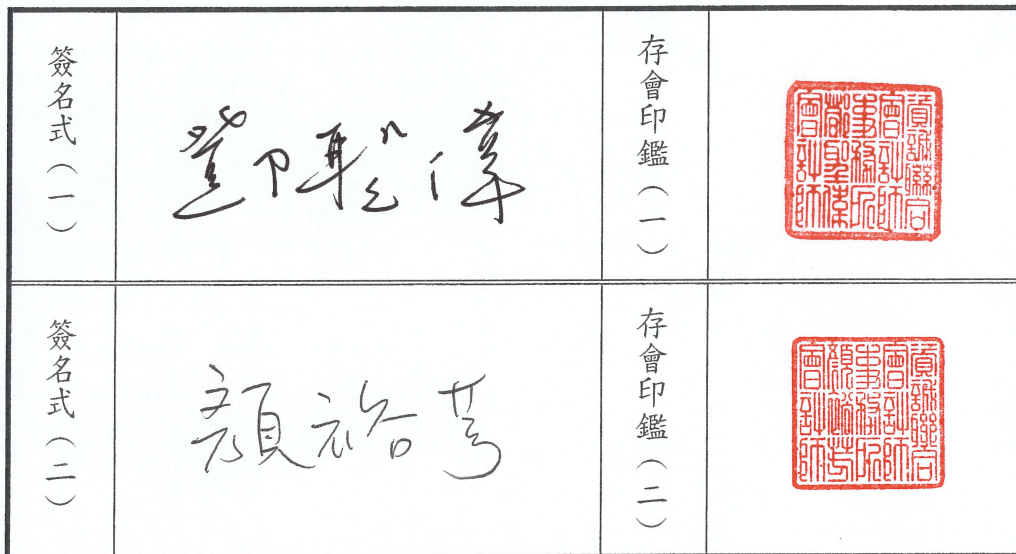 簽名式(一)
鄧聖偉
存會印鑑(一)
資誠聯合
會計師
事務所
鄧聖偉
會計師
簽名式(二)
顏裕芳
存會印鑑(二)
資誠聯合
會計師
事務所
顏裕芳
會計師